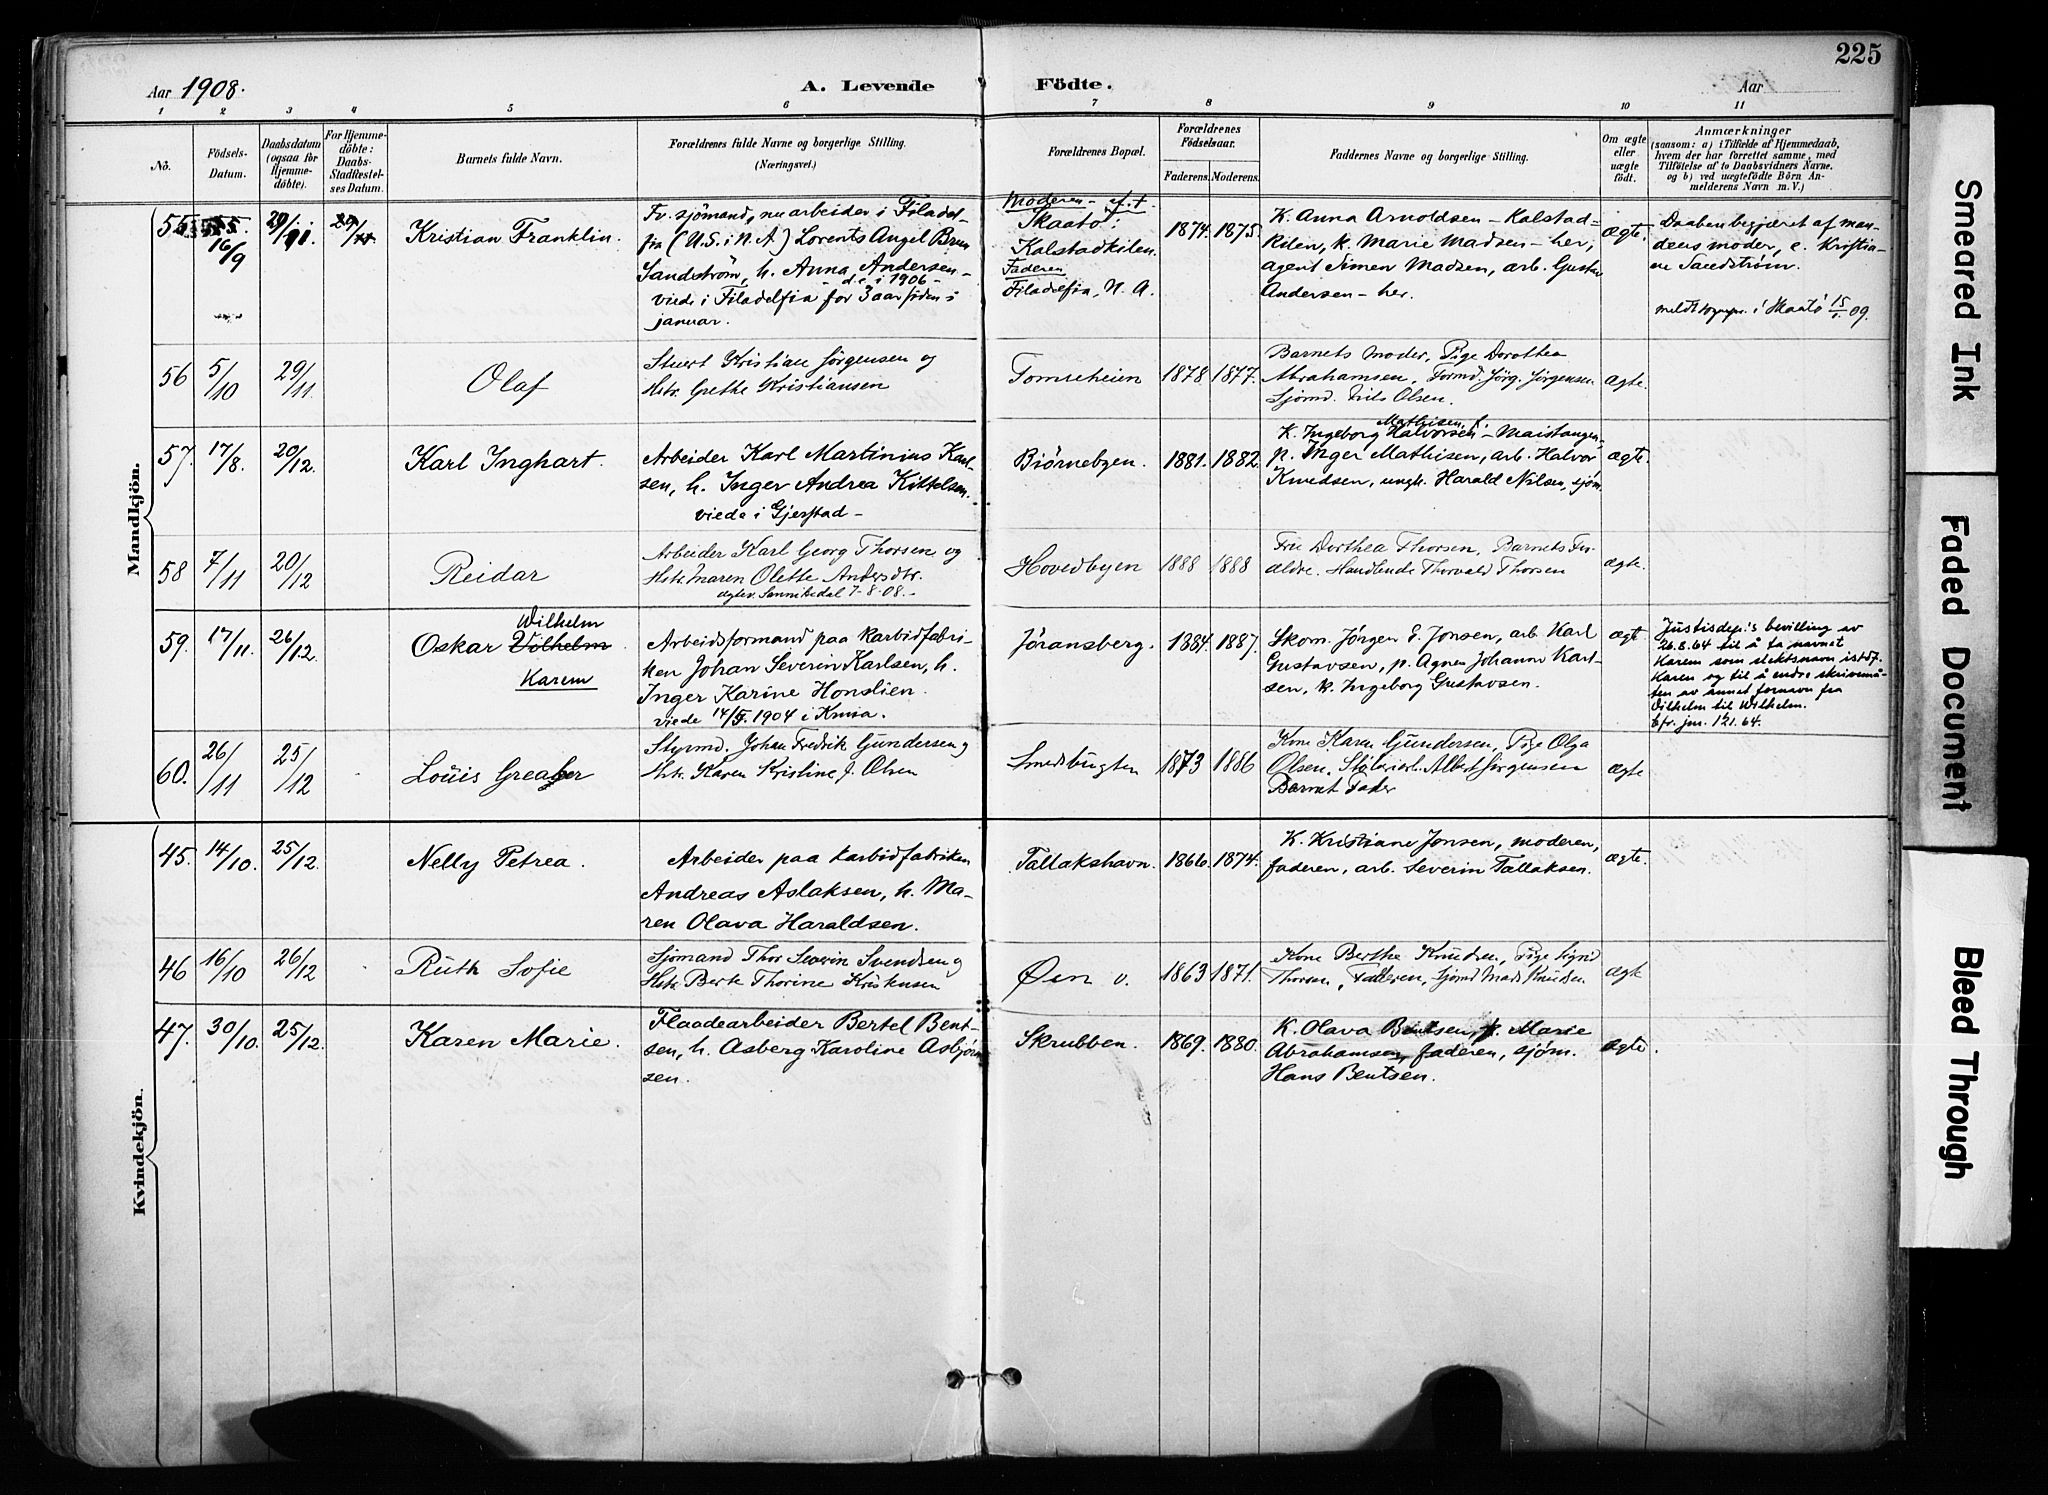 225
Aar 1908.
A. Levende Födte.
Aar
1 2 3 4 5 6 7 8 9 10 11
No.
Födsels-Datum.
Daabsdatum (ogsaa for Hjemme-döbte).
For Hjemme-döbte: Daabs-Stadfestel-ses Datum.
Barnets fulde Navn.
Forældrenes fulde Navne og borgerlige Stilling.
(Næringsvei.)
Forældrenes Bopæl.
Forældrenes Födselsaar.
Faderens. Moderens.
Faddernes Navne og borgerlige Stilling.
Om ægte eller uægte födt.
Anmærkninger
(saasom: a) i Tilfælde af Hjemmedaab,
hvem der har forrettet samme, med
Tilföielse af to Daabsvidners Navne.
og b) ved uægtefödte Börn An-
melderens Navn m. V.)
Mandkjön.
55 16/9 29/11
Kristian Franklin.
Fv. sjömand, nu arbeider i Filadel-
fia (U.S. i N.A) Lorents Angel Brun
Sandström, h. Anna Andersen -
- d.e i 1906 -
viede i Filadelfia for 3 aar siden i
januar.
Moderen - e.f.t.
Skaatö:
Kalstadkilen.
Faderen
Filadelfia, N. A.
1874. 1875.
K. Anna Arnoldsen - Kalstad-
kilen, k. Marie Madsen - her,
agent Simen Madsen, arb. Gustav
Andersen - her.
ægte.
Daaben begjæret af man-
dens moder, e. Kristia-
ne Sandström.
meldt sognepr. i Skaatö 15/1 09.
56 5/10 29/11
Olaf
Stuert Kristian Jörgensen og
Hstr. Grethe Kristiansen
Tomteheien
1878 1877.
Barnets Moder, Pige Dorothea
Abrahamsen, Formd. Jörg. Jörgensen
Sjömd. Nils Olsen.
ægte.
57. 17/8. 20/12.
Karl Inghart.
Arbeider Karl Martinius Karl-
sen, h. Inger Andrea Kittelsen.
viede i Gjerstad -
Biörnebyen.
1881. 1882.
Mathisen, f.
K. Ingeborg Halvorsen - Maistangen,
p. Inger Mathisen, arb. Halvor
Knudsen, ungk. Harald Nilsen, sjöm.
ægte.
58 7/11 20/12
Reidar
Arbeider Karl Georg Thorsen og
Hstr. Maren Olette Andersdtr.
ægtev. Sannikedal 7-8-08. -
Hovedbyen
1888 1888
Fru Dorthea Thorsen, Barnets For-
ældre. Handlende Thorvald Thorsen
ægte.
59. 17/11. 26/12.
Wilhelm
Oskar Vilhelm.
Karem
Arbeidsformand paa karbidfabri-
ken Johan Severin Karlsen, h.
Inger Karine Honslien.
viede 14/5. 1904 i Knia.
Jöransberg.
1884. 1887.
Skom. Jörgen E. Jonsen, arb. Karl
Gustavsen, p. Agnes Johanne Karl-
sen, k. Ingeborg Gustavsen.
ægte
Justisdep.'s bevilling av
26.8.64 til å ta navnet
Karem som slektsnavn istdf.
Karem og til å endre skrivemå-
ten av annet fornavn fra
Vilhelm til Wilhelm.
Cfr. jnr. 121.64.
60. 26/11 25/12
Louis Greager
Styrmd. Johan Fredrik Gundersen og
Hstr. Karen Kristine J. Olsen
Smedsbugten
1873 1886
Kone Karen Gundersen, Pige Olga
Olsen. Stålarb. Albert Jörgensen
Barnet Fader
ægte
Kvindekjön.
45. 14/10. 25/12.
Nelly Petrea.
Arbeider paa karbidfabriken
Andreas Aslaksen, h. Ma-
ren Olava Haraldsen.
Tallakshavn.
1866. 1874.
K. Kristiane Jonsen, moderen,
faderen, arb. Severin Tallaksen.
ægte.
46 16/10 26/12
Ruth Sofie
Sjömand Thor Severin Svendsen og
Hstr. Berte Thorine Kristensen
Öen v.
1863 1871.
Kone Berthe Knudsen, Pige Sigrid
Thorsen, Faderen, Sjömd Mads Knudsen
ægte
47. 30/10. 25/12.
Karen Marie.
Flaadearbeider Bertel Bent-
sen, h. Asberg Karoline Asbjörn-
sen.
Skrubben.
1869. 1880.
K. Olava Bentsen, p. Marie
Abrahamsen, faderen, sjöm.
Hans Bentsen.
ægte.
Smeared Ink
Faded Document
Bleed Through